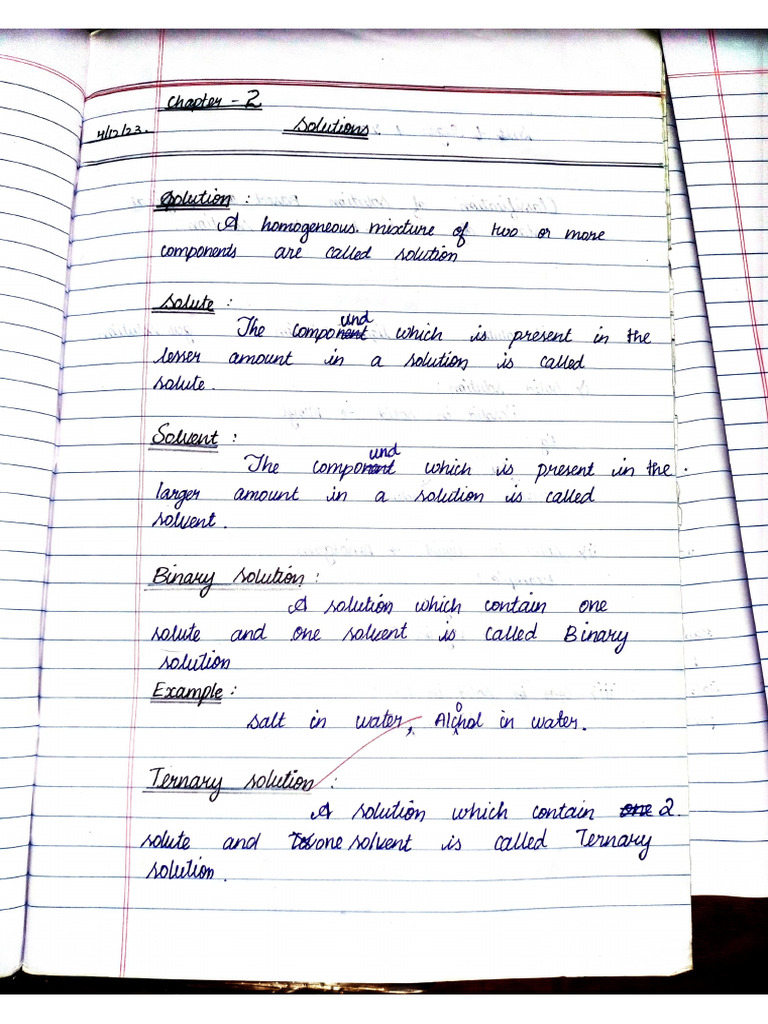 Chapter - 2
4/12/23. Solutions
Solution :
A homogeneous mixture of two or more
components are called solution
Solute :
The compound which is present in the
lesser amount in a solution is called
solute.
Solvent :
The compound which is present in the.
larger amount in a solution is called
solvent.
Binary solution :
A solution which contain one
solute and one solvent is called Binary
solution
Example :
salt in water, Alcohol in water.
Ternary solution :
A solution which contain one 2.
solute and one solvent is called Ternary
solution.